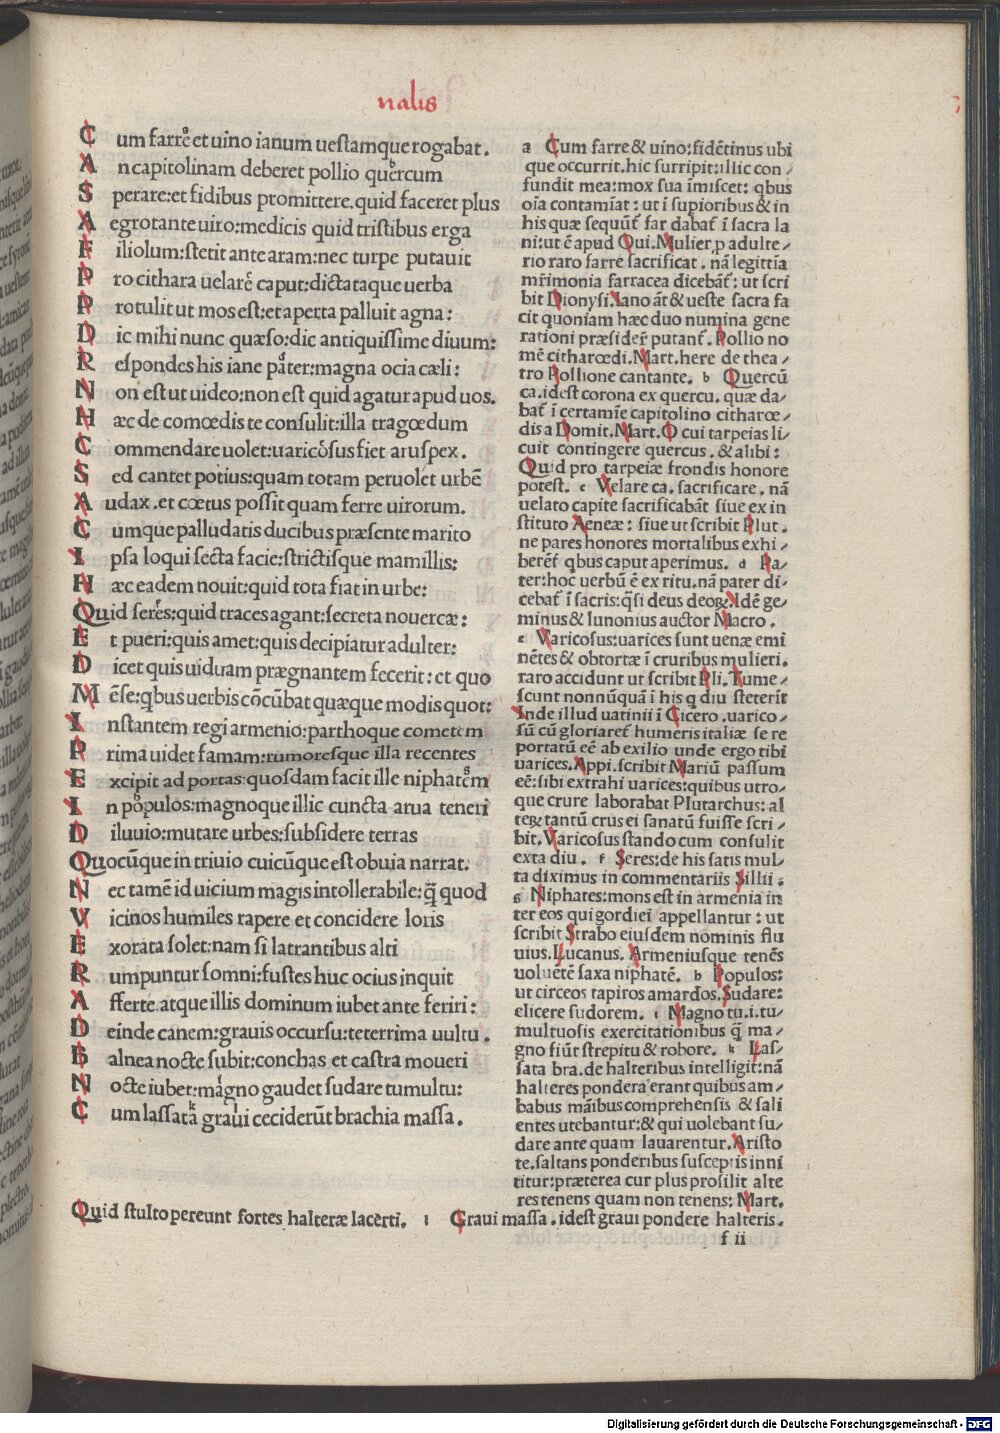 nalis
Cum farre et uino ianum uestamque rogabat.
An capitolinam deberet pollio quercum
Sperare: et fidibus promittere. quid faceret plus
Aegrotante uiro: medicis quid tristibus erga
Filiolum: stetit ante aram: nec turpe putauit
Pro cithara uelare caput: dictataque uerba
Protulit ut mos est: et aperta palluit agna:
Dic mihi nunc quæso: dic antiquissime diuum:
Respondes his iane pater: magna ocia cæli:
Non est ut uideo: non est quid agatur apud uos.
Hæc de comœdis te consulit: illa tragœdum
Commendare uolet: uaricosus fiet aruspex.
Sed cantet potius: quam totam peruolet urbē
Audax. et cœtus possit quam ferre uirorum.
Cumque palludatis ducibus præsente marito
Ipsa loqui recta facie: strictisque mamillis:
Hæc eadem nouit: quid tota fiat in urbe:
Quid seres: quid traces agant: secreta nouercæ:
Et pueri: quis amet: quis decipiatur adulter:
Dicet quis uiduam prægnantem fecerit: et quo
Mēse: qbus uerbis cōcūbat quæque modis quot:
Instantem regi armenio: parthoque cometem
Prima uidet famam: rumoresque illa recentes
Excipit ad portas: quosdam facit ille niphatem
In populos: magnoque illic cuncta arua teneri
Diluuio: mutare urbes: subsidere terras
Quocūque in triuio cuicūque est obuia narrat.
Nec tamē id uicium magis intollerabile: q̄ quod
Vicinos humiles rapere et concidere loris
Exorata solet: nam si latrantibus alti
Rumpuntur somni: fustes huc ocius inquit
Afferte. atque illis dominum iubet ante feriri:
Deinde canem: grauis occursu: teterrima uultu.
Balnea nocte subit: conchas et castra moueri
Nocte iubet: magno gaudet sudare tumultu:
Cum lassata graui ceciderūt brachia massa.
a Cum farre & uino: fidētinus ubi
que occurrit. hic surripit: illic con/
fundit mea: mox sua īmiscet: qbus
oīa contamīat: ut ī supioribus & in
his quæ sequūt̄ far dabat̄ ī sacra la
ni: ut ē apud Qui. Mulier p adulte/
rio raro farre sacrificat. nā legittīa
mr̄imonia farracea dicebāt̄: ut scri
bit Dionysi. Iano āt & ueste sacra fa
cit quoniam hæc duo numina gene
rationi præsider̄ putant̄. Pollio no
mē citharœdi. Mart. here de thea/
tro Pollione cantante. b Quercū
ca. idest corona ex quercu. quæ da/
bat̄ ī certamīe capitolino citharœ/
dis a Domit. Mart. O cui tarpeias li/
cuit contingere quercus. & alibi:
Quid pro tarpeiæ frondis honore
potest. c Velare ca. sacrificare. nā
uelato capite sacrificabāt siue ex in
stituto Aeneæ: siue ut scribit Plut.
ne pares honores mortalibus exhi/
berēt̄ qbus caput aperimus. d Pa/
ter: hoc uerbū ē ex ritu. nā pater di/
cebat̄ ī sacris: q̄si deus deoꝝ. Idē ge/
minus & Iunonius auctor Macro.
e Varicosus: uarices sunt uenæ emi
nētes & obtortæ ī cruribus mulieri.
raro accidunt ut scribit Pli. Tume/
scunt nonnūquā ī his q diu steterīt
Inde illud uatinii ī Cicero. uarico/
sū cū gloriaret̄ humeris italiæ se re
portatū eē ab exilio unde ergo tibi
uarices. Appi. scribit Mariū passum
eē: sibi extrahi uarices: quibus utro/
que crure laborabat Plutarchus: al
teꝝ tantū crus ei sanatū fuisse scri/
bit. Varicosus stando cum consulit
exta diu. f Seres: de his satis mul/
ta diximus in commentariis Sillii.
g Niphates: mons est in armenia in
ter eos qui gordiei appellantur: ut
scribit Strabo eiusdem nominis flu
uius. Lucanus. Armeniusque tenēs
uoluētē saxa niphatē. h Populos:
ut circeos tapiros amardos. Sudare:
elicere sudorem. i Magno tu. i. tu/
multuosis exercitationibus q̄ ma/
gno fiūt strepitu & robore. k Las/
sata bra. de halteribus intelligit: nā
halteres pondera erant quibus am/
babus māibus comprehensis & sali
entes utebantur: & qui uolebant su/
dare ante quam lauarentur. Aristo
te. saltans ponderibus susceptis inni
titur: præterea cur plus prosilit alte
res tenens quam non tenens: Mart.
Quid stulto pereunt fortes halteræ lacerti. l Graui massa. idest graui pondere halteris.
f ii
Digitalisierung gefördert durch die Deutsche Forschungsgemeinschaft - DFG